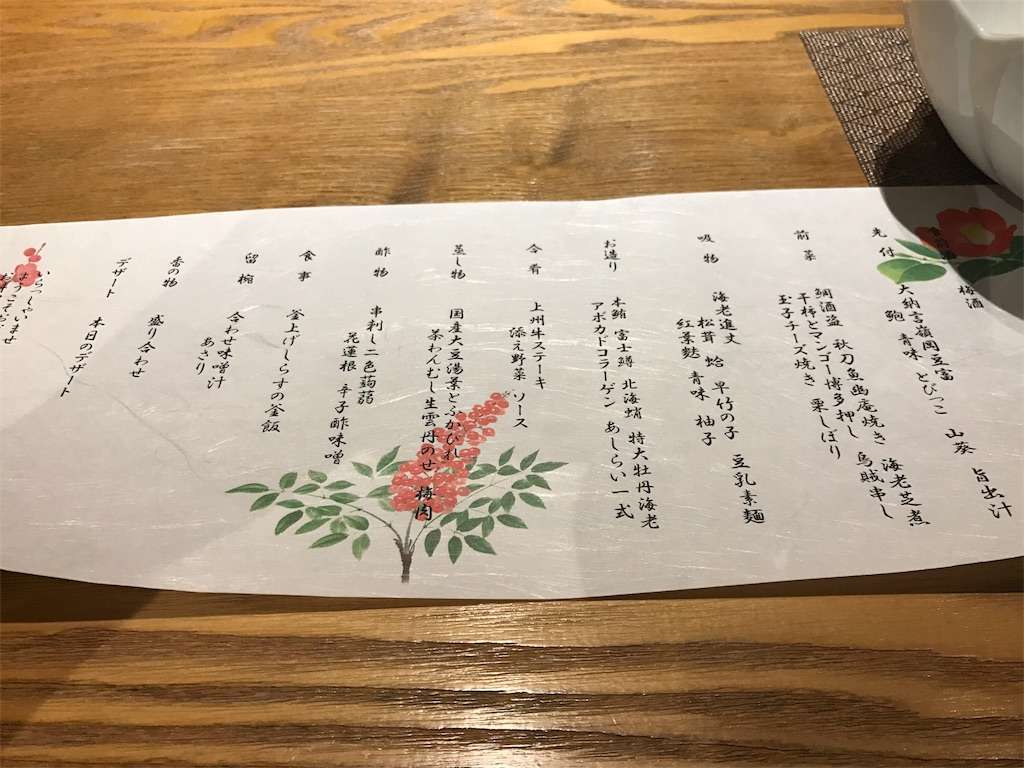 梅酒
先付
大納言嶺岡豆富 山葵 旨出汁
鮑 青味 とびっこ
前菜
鯛酒盗 秋刀魚幽庵焼き 海老芝煮
干柿とマンゴー博多押し 烏賊串し
玉子チーズ焼き 栗しぼり
吸物
海老進丈 豆乳素麺
松茸 蛤 早竹の子
紅葉麩 青味 柚子
お造り
本鮪 富士鱒 北海蛸 特大牡丹海老
アボカドコラーゲン あしらい一式
合肴
上州牛ステーキ
添え野菜 ソース
蒸し物
国産大豆湯葉とふかひれ
茶わんむし生雲丹のせ 梅肉
酢物
串刺し二色蒟蒻
花蓮根 辛子酢味噌
食事
釜上げしらすの釜飯
留椀
合わせ味噌汁
あさり
香の物
盛り合わせ
デザート
本日のデザート
いらっしゃいませ